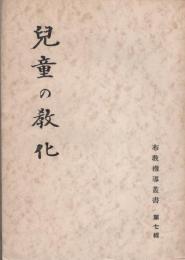 兒童の教化
布教指導叢書 第七輯